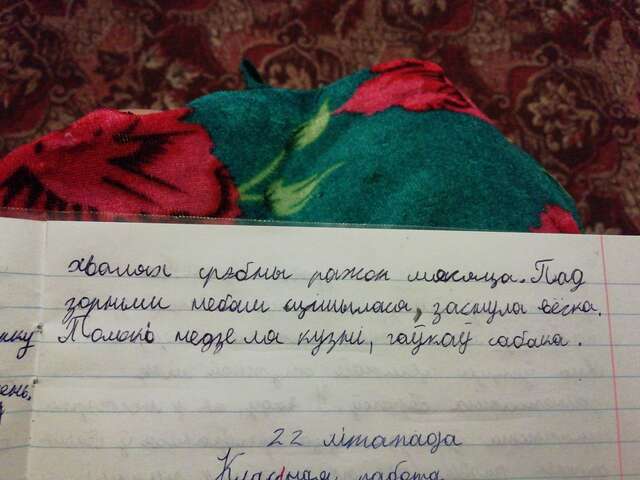 хвалях срэбны ражок месяца. Пад
зорным небам сцішылася, заснула вёска.
Толькі недзе ля кузні, гаўкаў сабака.
22 лістапада
Класная работа